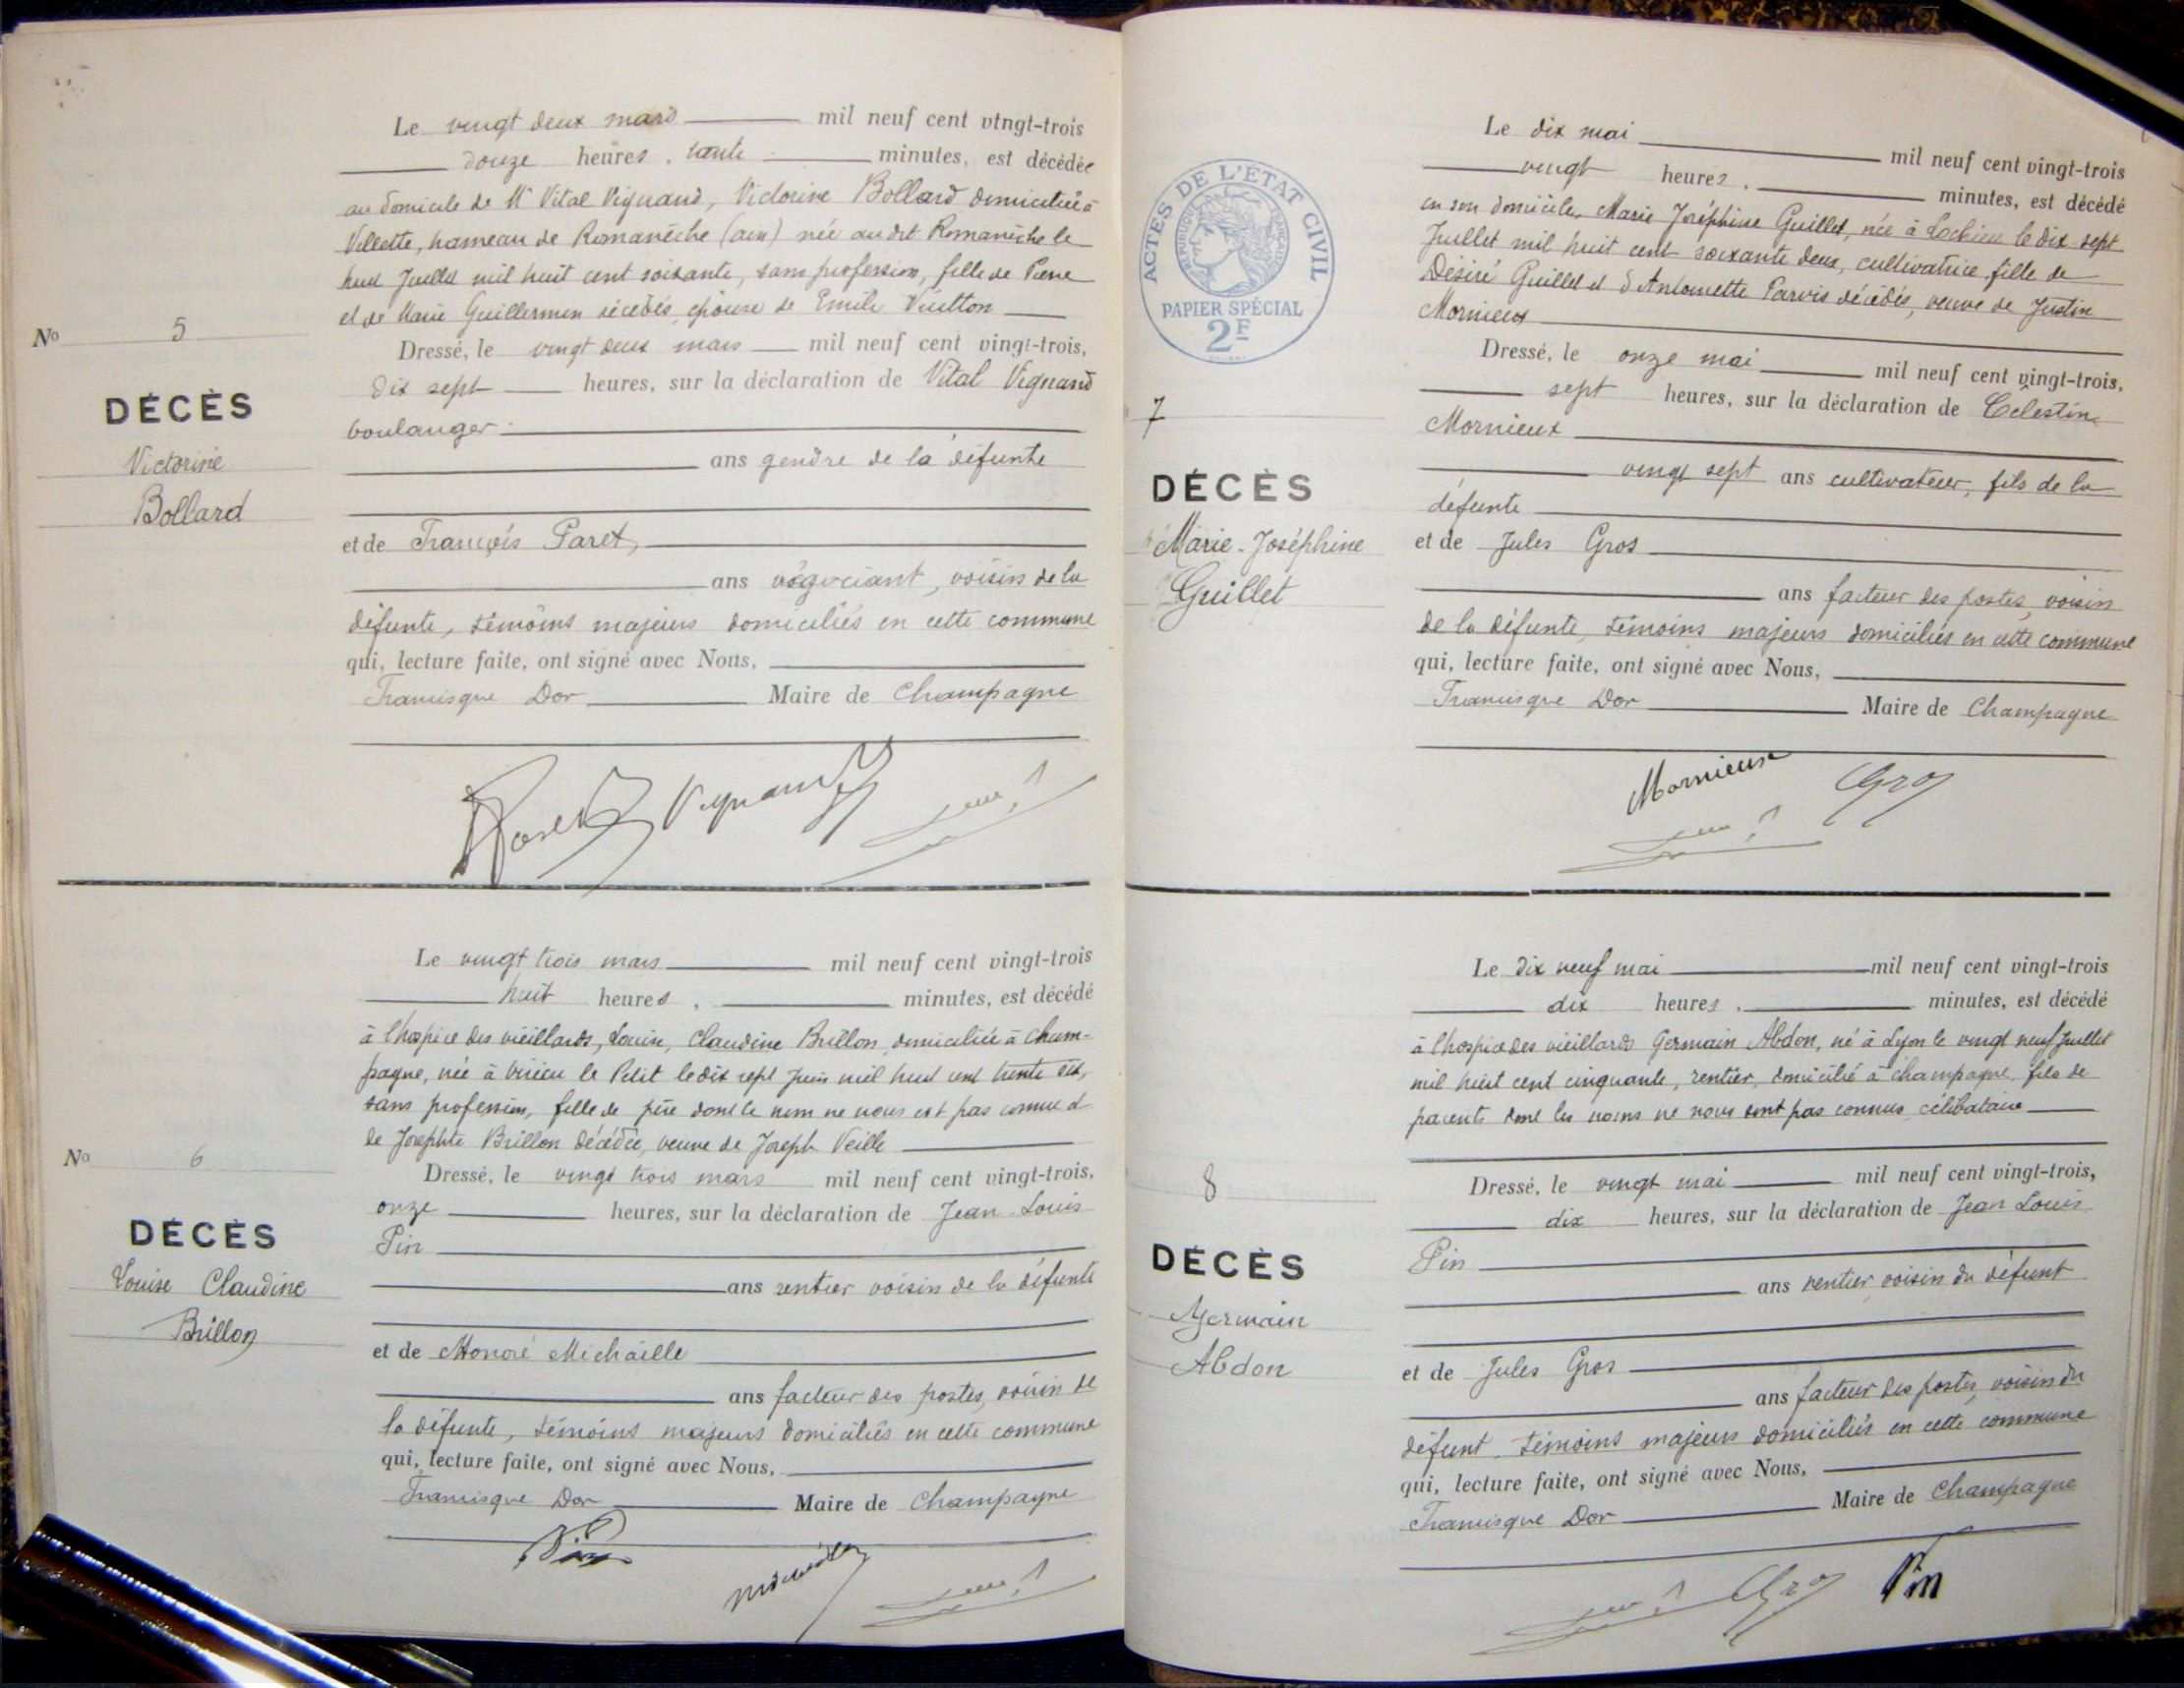 Le vingt deux mars mil neuf cent vingt-trois
douze heures, trente minutes, est décédée
au domicile de Mr Vital Vignand, Victorine Bollard domiciliée à
Villette, hameau de Romanèche (ain) née au dit Romanèche le
huit Juillet mil huit cent soixante, sans profession, fille de Pierre
et de Marie Guillermin décédés, épouse de Emile Vuitton
No 5
Dressé, le vingt deux mars mil neuf cent vingt-trois,
dix sept heures, sur la déclaration de Vital Vignand
DÉCÈS
boulanger
Victorine
ans gendre de la défunte
Bollard
et de François Paret,
ans négociant, voisin de la
défunte, témoins majeurs domiciliés en cette commune
qui, lecture faite, ont signé avec Nous,
Francisque Dor Maire de Champagne
Paret Vignand
Le vingt trois mars mil neuf cent vingt-trois
huit heures, minutes, est décédé
à l'hospice des vieillards, Louise, Claudine Brillon, domiciliée à Cham-
pagne, née à Virieu le Petit le dix sept Juin mil huit cent trente six,
sans profession, fille de père dont le nom ne nous est pas connu et
de Josephte Brillon décédée, veuve de Joseph Veille
No 6
Dressé, le vingt trois mars mil neuf cent vingt-trois,
onze heures, sur la déclaration de Jean-Louis
DÉCÈS
Pin
Louise Claudine
ans rentier voisin de la défunte
Brillon
et de Honoré Michaille
ans facteur des postes, voisin de
la défunte, témoins majeurs domiciliés en cette commune
qui, lecture faite, ont signé avec Nous,
Francisque Dor Maire de Champagne
Pin Michaille
Le dix mai mil neuf cent vingt-trois
vingt heures, minutes, est décédé
en son domicile, Marie Joséphine Guillet, née à Lochieu le dix sept
Juillet mil huit cent soixante deux, cultivatrice, fille de
Désiré Guillet et d'Antoinette Parvis décédés, veuve de Justin
Mornieux
ACTES DE L'ETAT CIVIL
REPUBLIQUE FRANÇAISE
PAPIER SPÉCIAL
2F
Dressé, le onze mai mil neuf cent vingt-trois,
sept heures, sur la déclaration de Célestin
7
Mornieux
DÉCÈS
vingt sept ans cultivateur, fils de la
défunte
Marie-Joséphine
et de Jules Gros
Guillet
ans facteur des postes, voisin
de la défunte, témoins majeurs domiciliés en cette commune
qui, lecture faite, ont signé avec Nous,
Francisque Dor Maire de Champagne
Mornieux Gros
Le dix neuf mai mil neuf cent vingt-trois
dix heures, minutes, est décédé
à l'hospice des vieillards Germain Abdon, né à Lyon le vingt neuf Juillet
mil huit cent cinquante, rentier, domicilié à Champagne, fils de
parents dont les noms ne nous sont pas connus, célibataire
8
Dressé, le vingt mai mil neuf cent vingt-trois,
dix heures, sur la déclaration de Jean Louis
DÉCÈS
Pin
ans rentier, voisin du défunt
Germain
Abdon
et de Jules Gros
ans facteur des postes, voisin du
défunt, témoins majeurs domiciliés en cette commune
qui, lecture faite, ont signé avec Nous,
Francisque Dor Maire de Champagne
Gros Pin